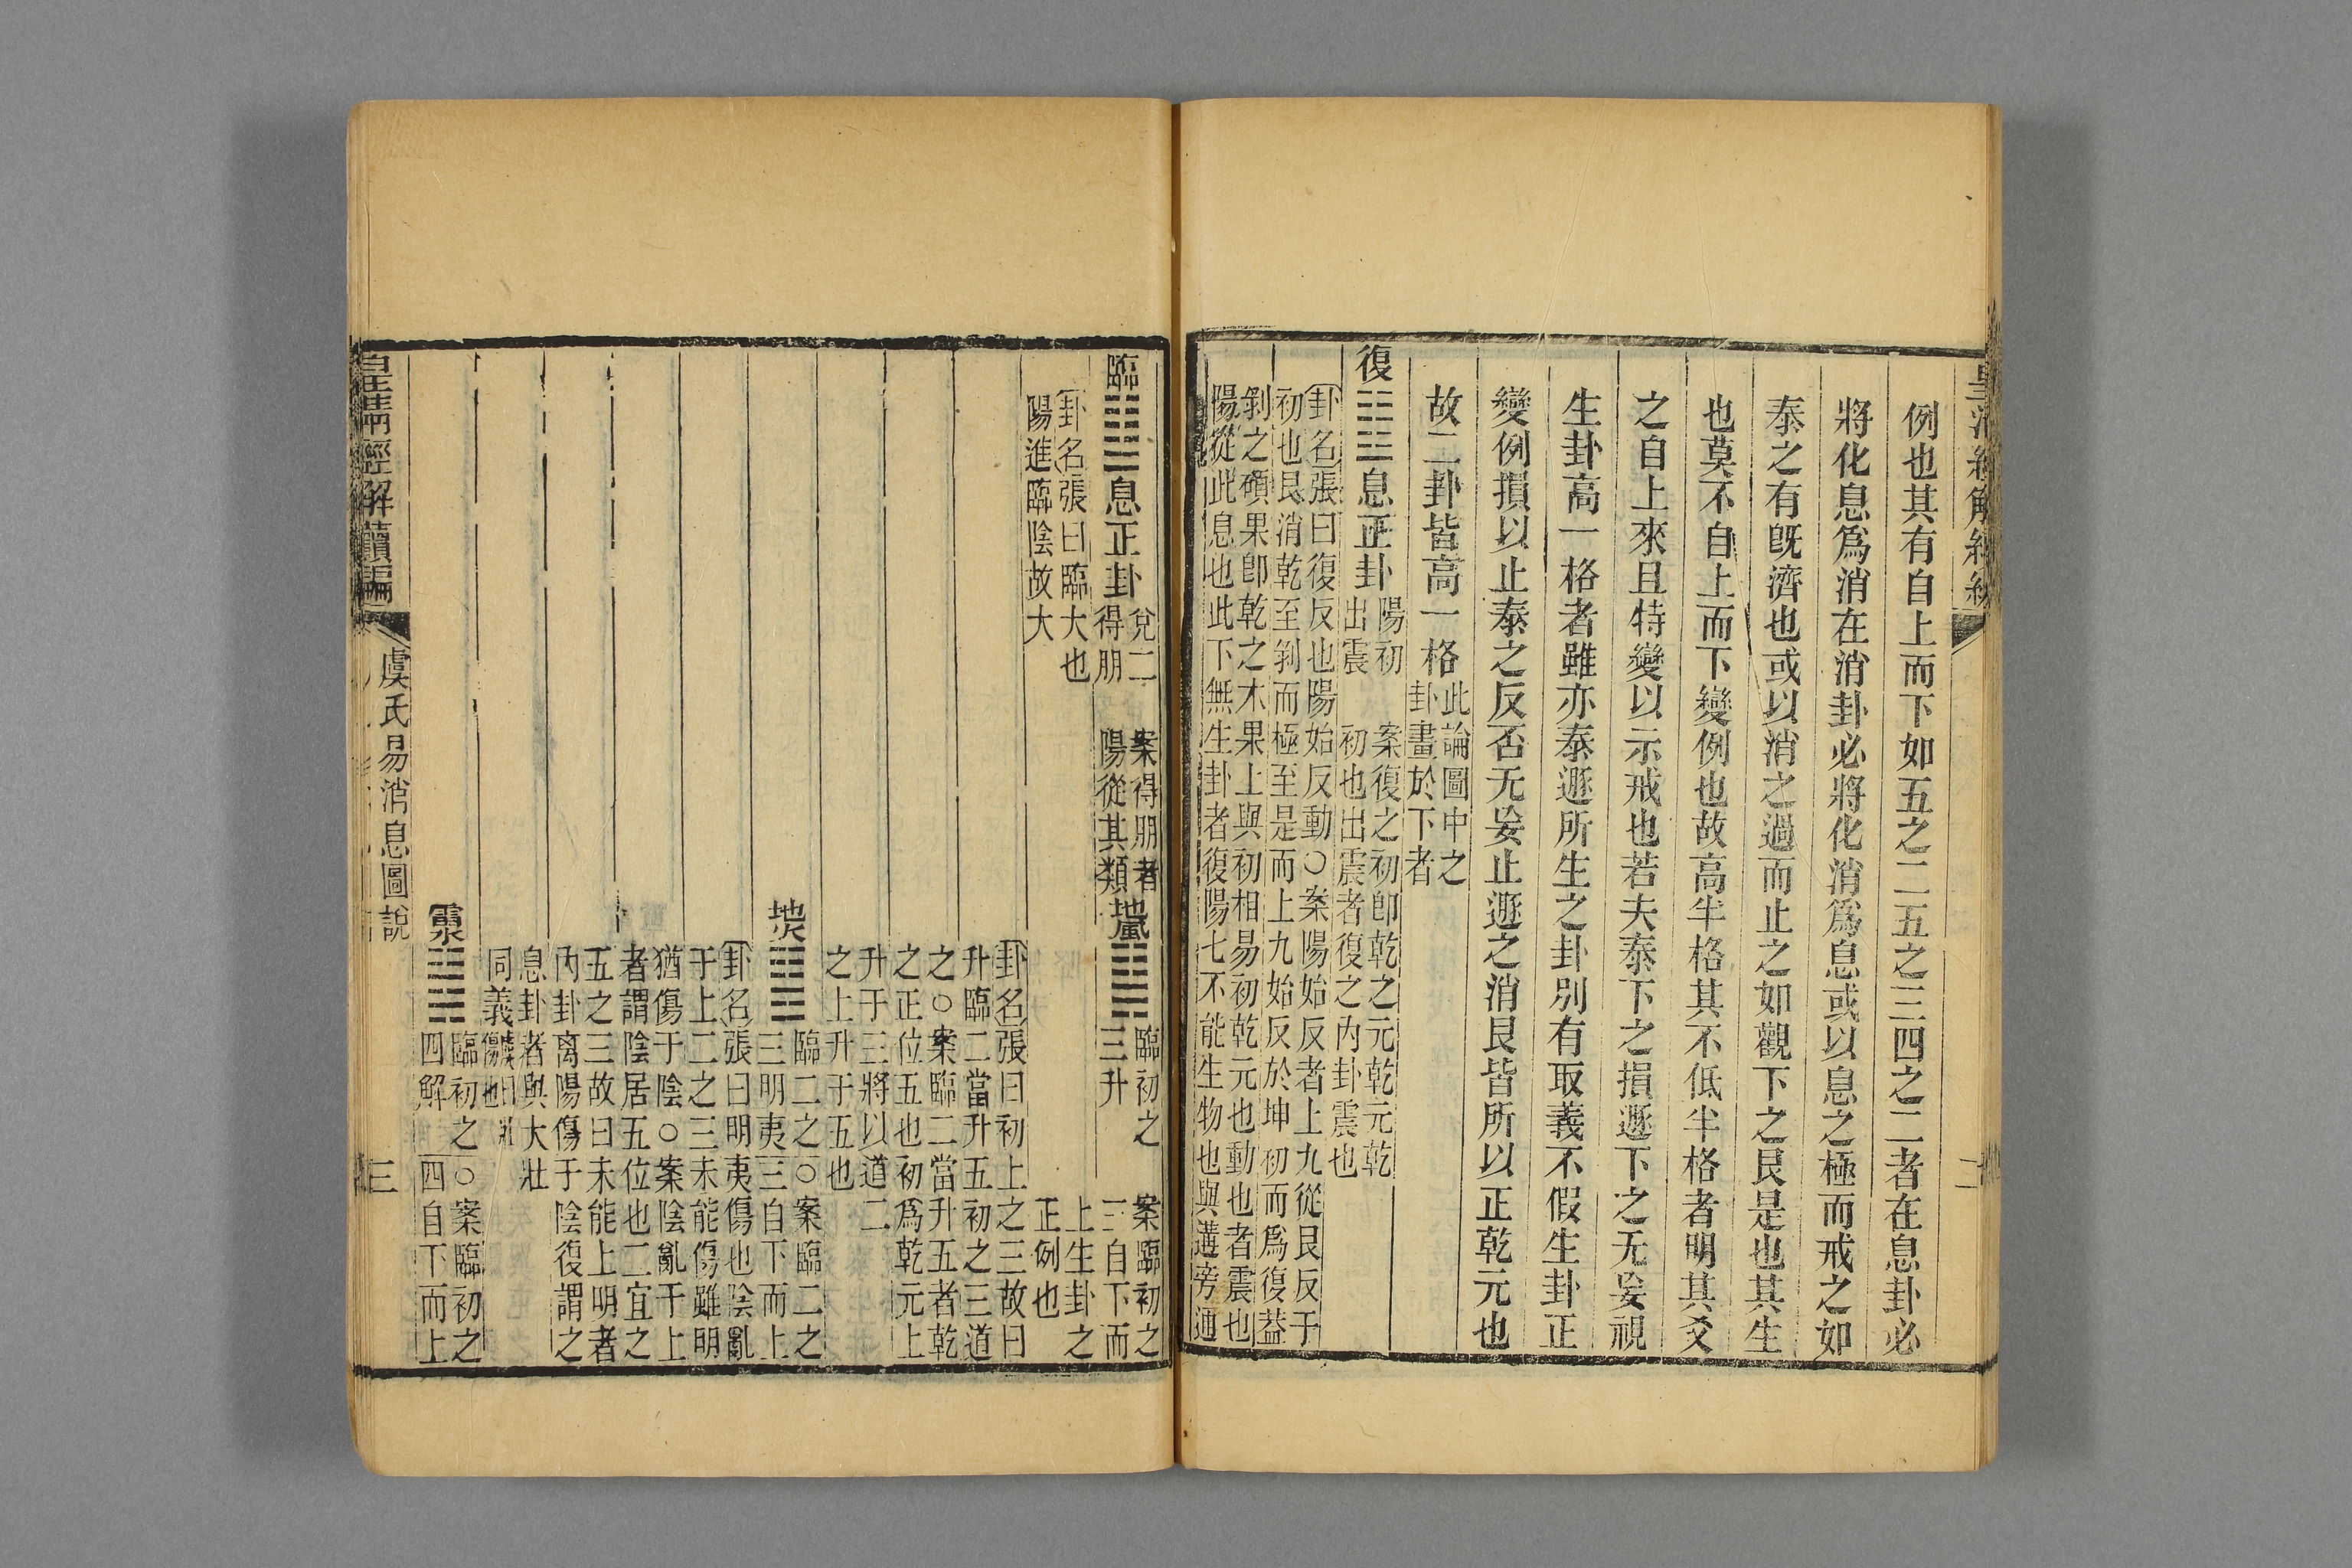 例也其有自上而下如五之二五之三四之二者在息卦必
將化息爲消在消卦必將化消爲息或以息之極而戒之如
泰之有旣濟也或以消之過而止之如觀下之艮是也其生
也莫不自上而下變例也故高半格其不低半格者明其爻
之自上來且特變以示戒也若夫泰下之損遯下之无妄視
生卦高一格者雖亦泰遯所生之卦別有取義不假生卦正
變例損以止泰之反否无妄止遯之消艮皆所以正乾元也
故二卦皆高一格
此論圖中之
卦畫於下者
復䷗息正卦
陽初
出震
案復之初卽乾之元乾元乾
初也出震者復之內卦震也
卦名張曰復反也陽始反動○案陽始反者上九從艮反于
初也艮消乾至剝而極至是而上九始反於坤初而爲復蓋
剝之碩果卽乾之木果上與初相易初乾元也動也者震也
陽從此息也此下無生卦者復陽七不能生物也與遘旁通
臨䷒息正卦
兌二
得朋
案得朋者
陽從其類
卦名張曰臨大也
陽進臨陰故大
地風䷭
臨初之
三升
案臨初之
三自下而
上生卦之
正例也
卦名張曰初上之三故曰
升臨二當升五初之三道
之○案臨二當升五者乾
之正位五也初爲乾元上
升于三將以道二
之上升于五也
地火䷣
臨二之
三明夷
○案臨二之
三自下而上
卦名張曰明夷傷也陰亂
于上二之三未能傷雖明
猶傷于陰○案陰亂于上
者謂陰居五位也二宜之
五之三故曰未能上明者
內卦离陽傷于陰復謂之
息卦者與大壯
同義
傷也
雷水䷧
臨初之
四解
○案臨初之
四自下而上
皇淸經解續編
虞氏易消息圖說
三